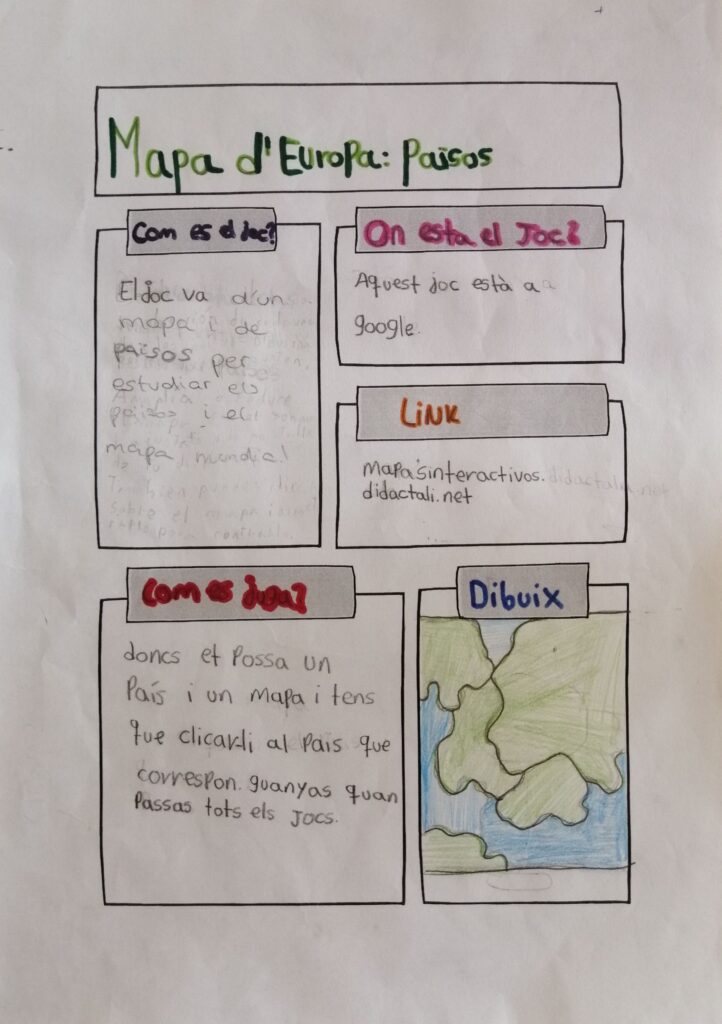 Mapa d'Europa: països
Com es el joc?
El joc va d'un
mapa i de
països per
estudiar els
països i el
mapa mundial
On esta el Joc?
Aquest joc està a
google.
Link
mapasinteractivos.
didactali.net
Com es juga?
doncs et possa un
País i un mapa i tens
que clicar-li al país que
correspon. guanyas quan
passas tots els jocs.
Dibuix